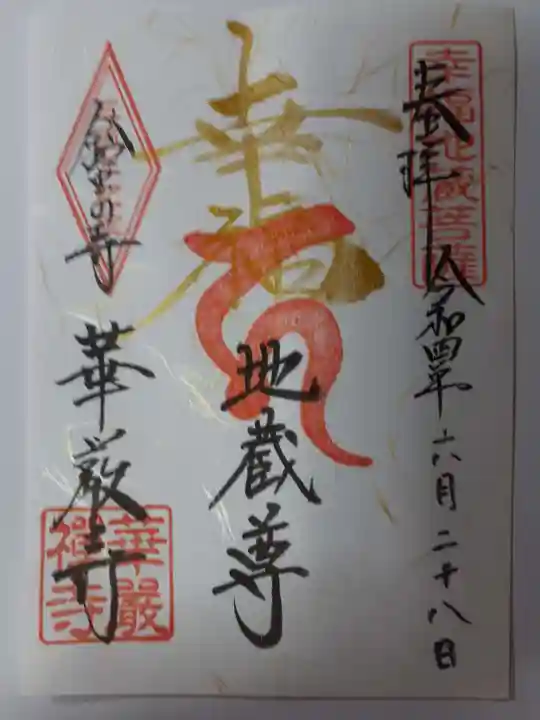 奉拝
令和四年 六月二十八日
幸福地蔵菩薩
幸福
地蔵尊
鈴虫の寺
華厳寺
華嚴禪寺